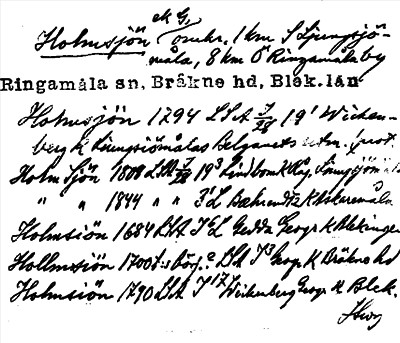 ek G,
Holmsjön omkr. 1 km S Ljungsjö-
måla, 8 km Ö Ringamåla by
Ringamåla sn, Bräkne hd, Blek.län
Holmsjön 1794 LSA 19¹ Wicken-
berg K Ljungsiömålas Belgenets
Holm Siön 1808 LSA 19³ Lindbom K Råg. Ljungsjömåla
" " 1844 " " 3¹L
Holmsiön 1684 LSA Gedda Geogr K Blekingen
Hollmsiön 1700 t:s börj.? LSA Geogr K Bräkne hd
Holmsiön 1790 LSA Wickenberg Geogr K Blek.